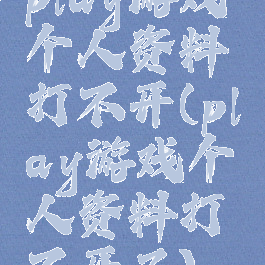 play游戏
个人资料
打不开(pl
ay游戏个
人资料打
不开了)